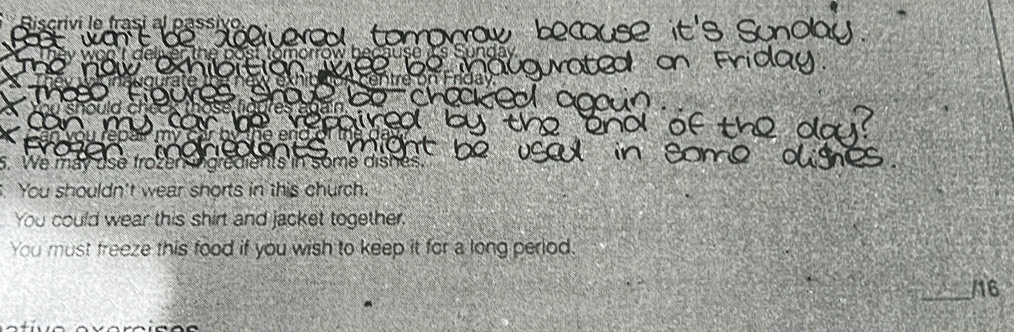 Riscrivi le frasi al passivo.
Post won't be delivered tomorrow because it's Sunday.
They won't deliver the post tomorrow because it's Sunday.
The new exhibition will be inaugurated on Friday.
inaugurate new centre on Friday.
Those figures should be checked again.
You should check those figures again.
Can my car be repaired by the end of the day?
Can you repair my car by the end of the day?
Frozen ingredients might be used in some dishes.
5. We may use frozen ingredients in some dishes.
You shouldn't wear shorts in this church.
You could wear this shirt and jacket together.
You must freeze this food if you wish to keep it for a long period.
___/16
exercises